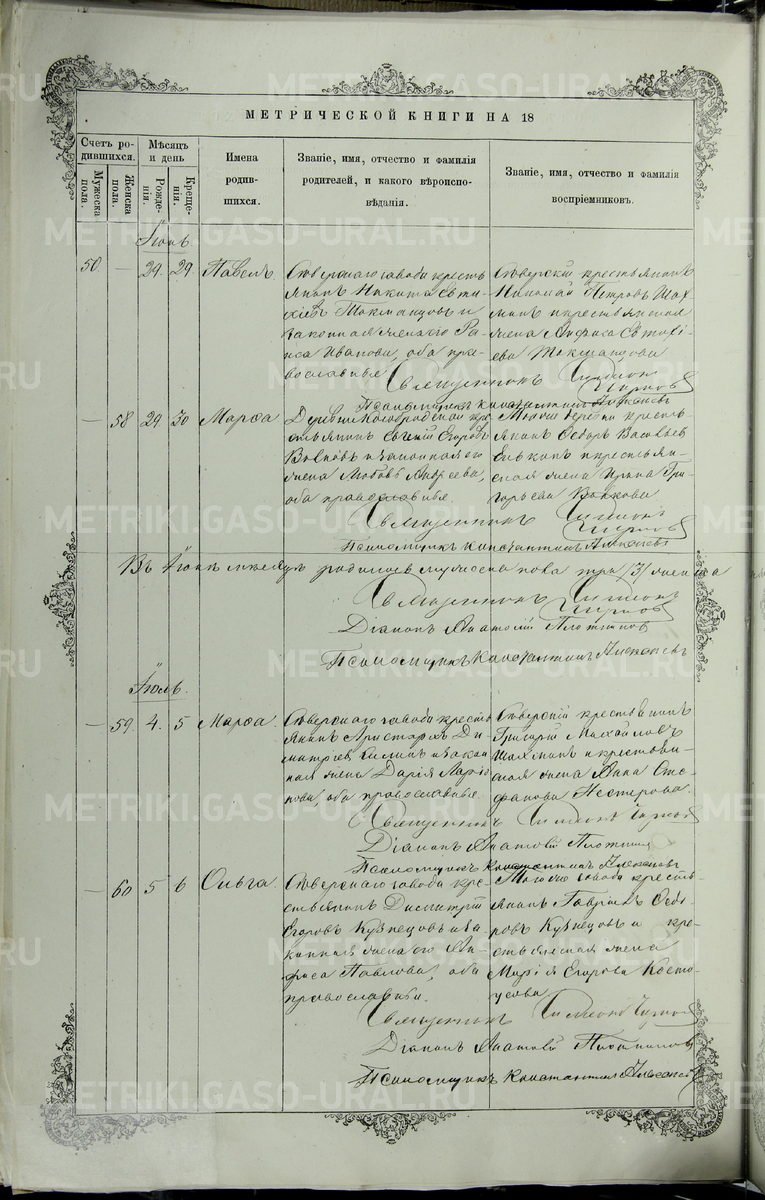 МЕТРИЧЕСКОЙ КНИГИ НА 18
Счетъ ро-
дившихся.
Мужеска
пола.
Женска
пола.
Мѣсяцъ
и день
Рожде-
нія.
Креще-
нія.
Имена
родив-
шихся.
Званіе, имя, отчество и фамилія
родителей, и какого вѣроиспо-
вѣданія.
Званіе, имя, отчество и фамилія
воспріемниковъ.
Іюнь
50. — 29. 29 Павелъ
Сѣверскаго завода кресть
янинъ Никита
и
законная жена его Ра-
иса Иванова, оба пра-
вославные
Сѣверскій крестьянинъ
Николай Петровъ Шах-
минъ и крестьянская
жена Анфиса
ева
Священникъ Симеонъ
Псаломщикъ Константинъ Алексѣевъ
— 58 29 30 Марѳа
Деревни кре
стьянинъ Евгеній Егоровъ
Волковъ и законная его
жена Любовь Андреева,
оба православные.
Тоя же деревни кресть
янинъ Ѳедоръ Васильевъ
и крестьян-
ская жена Ирина Гри-
горьева Волкова
Священникъ Симеонъ
Псаломщикъ Константинъ Алексѣевъ
Въ Іюнѣ мѣсяцѣ родилось мужеска пола три /3/ женска
Священникъ Симеонъ
Діаконъ Анатолій Плотниковъ
Псаломщикъ Константинъ Алексѣевъ
Іюль.
— 59. 4. 5 Марѳа.
Сѣверскаго завода кресть
янинъ Аристархъ Ди-
митріевъ и закон
ная жена Дарія Ларіо
нова, оба православные
Сѣверскій крестьянинъ
Григорій Михайловъ
Шахминъ и крестьян-
ская жена Анна Сте-
фанова Нестерова.
Священникъ Симеонъ
Діаконъ Анатолій Плотниковъ
Псаломщикъ Константинъ Алексѣевъ
— 60 5 6 Ольга.
Сѣверскаго завода кре-
стьянинъ Димитрій
Егоровъ Кузнецовъ и за-
конная жена его Ан-
фиса Павлова, оба
православные.
Того же завода кресть-
янинъ Гавріилъ Ѳедо-
ровъ Кузнецовъ и кре-
стьянская жена
Марія Егорова Косто-
усова
Священникъ Симеонъ
Діаконъ Анатолій Плотниковъ
Псаломщикъ Константинъ Алексѣевъ
METRIKI.GASO-URAL.RU